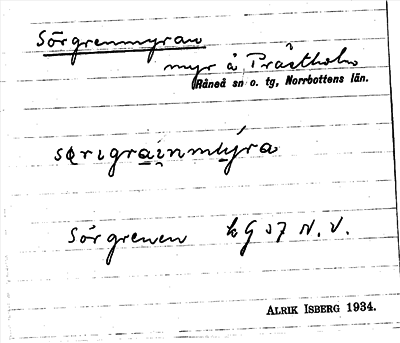 Sörgrenmyran
myr å Prästholm
Råneå sn o. tg, Norrbottens län.
Sörgrenen kG 37 N.V.
ALRIK ISBERG 1934.